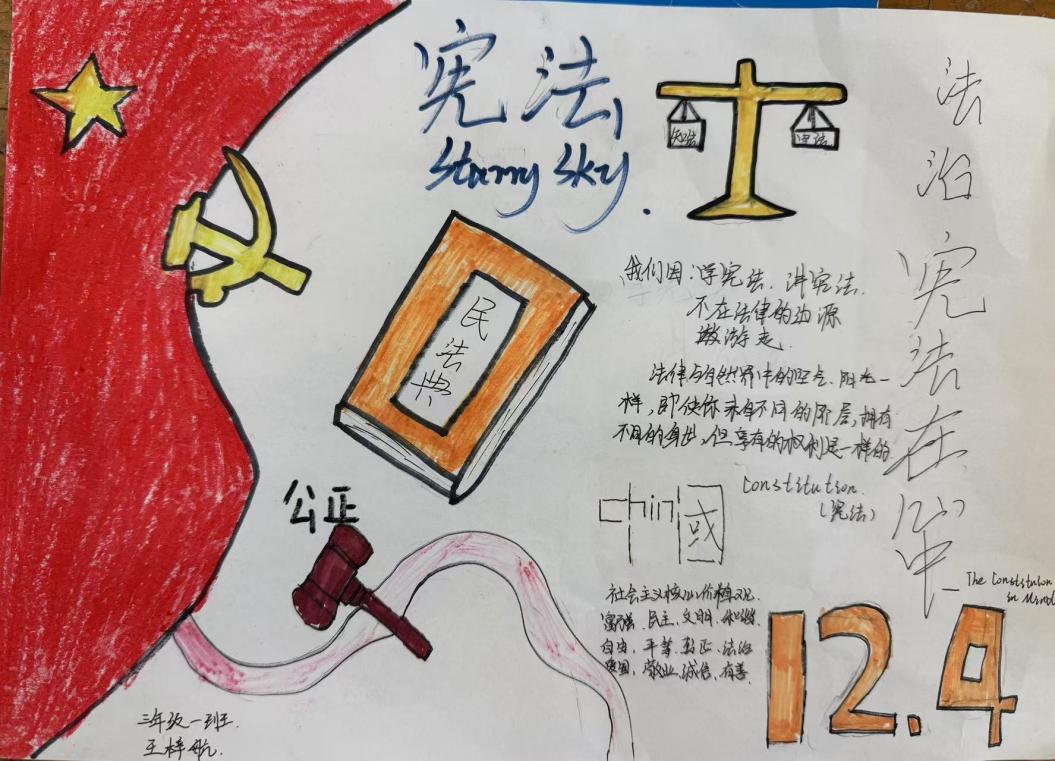 宪法
Starry Sky.
知法
守法
法治宪法在心中
The Constitution
in Mind
民法典
我们因:学宪法、讲宪法.
不在法律的边源
遨游走.
法律与自然界中的空气、阳光一
样,即使你来自不同的阶层,拥有
不同的身世,但享有的权利是一样的
Constitution.
(宪法)
chin國
公正
社会主义核心价值观.
富强、民主、文明、和谐
自由、平等、公正、法治
爱国、敬业、诚信、有善
12.4
三年级一班
王梓航.